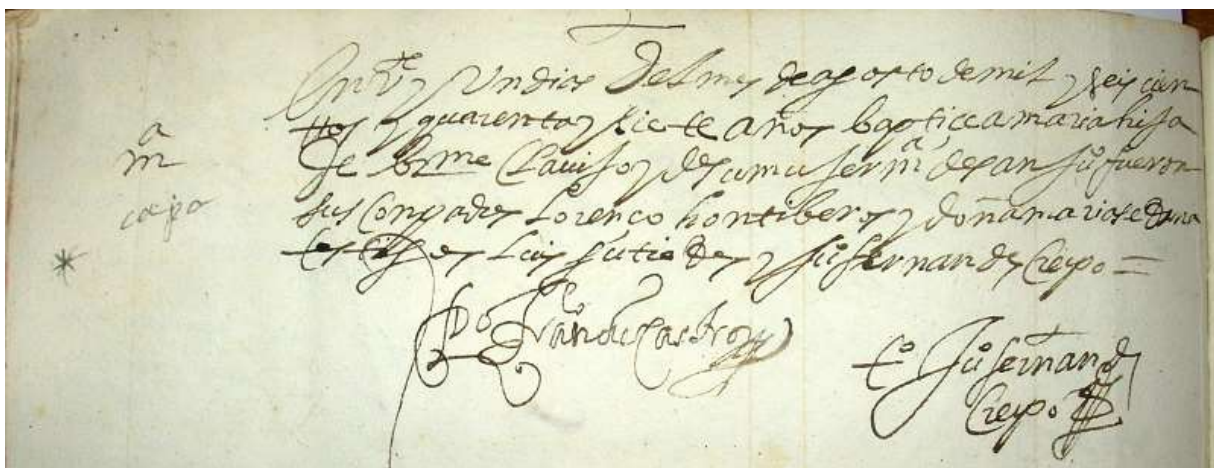 En V.te y Un dias Del mes de agosto de mil y seis cien
ttos y quarenta y siete años baptice a maria hija
de br.me Clavijo y de su muger m.a de san Ju.o fueron
sus Conpadres Lorenço hontiberos y doña maria
testigos Luis y Ju.o fernandes Crespo =
a
m
D.o de Castro
t.o Ju.o fernandes
Crespo